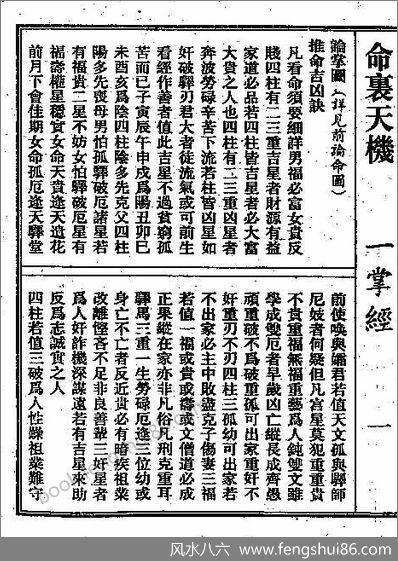 命裏天機　一掌經　一
論掌圖（詳見前論命圖）
推命吉凶訣
凡看命須要細詳男福必富女貴反
賤四柱有二三重吉星者財源有益
家道必品若四柱皆吉星者必大富
大貴之人也四柱有二三重凶星者
奔波勞碌辛苦下流若柱皆凶星如
奸破驛刃君大者徒流氣或可前生
看經作善者值此吉星不過貧窮孤
苦而已子寅辰午申戌爲陽丑卯巳
未酉亥爲陰四柱陰多先克父四柱
陽多先喪母男怕孤驛破厄諸星若
有福貴二星不妨女怕驛破厄星有
福壽權星穩實女命天貴逢天造花
前月下會佳期女命孤厄逢天驛堂
前使喚與孀君若值天文孤與驛師
尼妓者何疑但凡宮星莫犯重重貴
不貴重福無福重藝爲人鈍雙文雖
學成雙厄者早歲凶亡縱長成齊愚
頑重破不爲破重孤可出家重奸不
奸重刃不刃四柱三孤幼可出家若
不出家必主中敗盡克子傷妻三福
若值一福或貴或壽或文僧道必成
正果縱在家亦非凡俗凡刑克重耳
驛馬三重一生勞碌厄逢三位幼或
身亡不亡者反近貴必有暗疾祖業
改離慳吝不足非良善輩三奸星者
爲人奸詐機深謀遠若有吉星來助
反爲志誠實之人
四柱若值三破爲人性躁祖業難守
风水八六：www.fengshui86.com